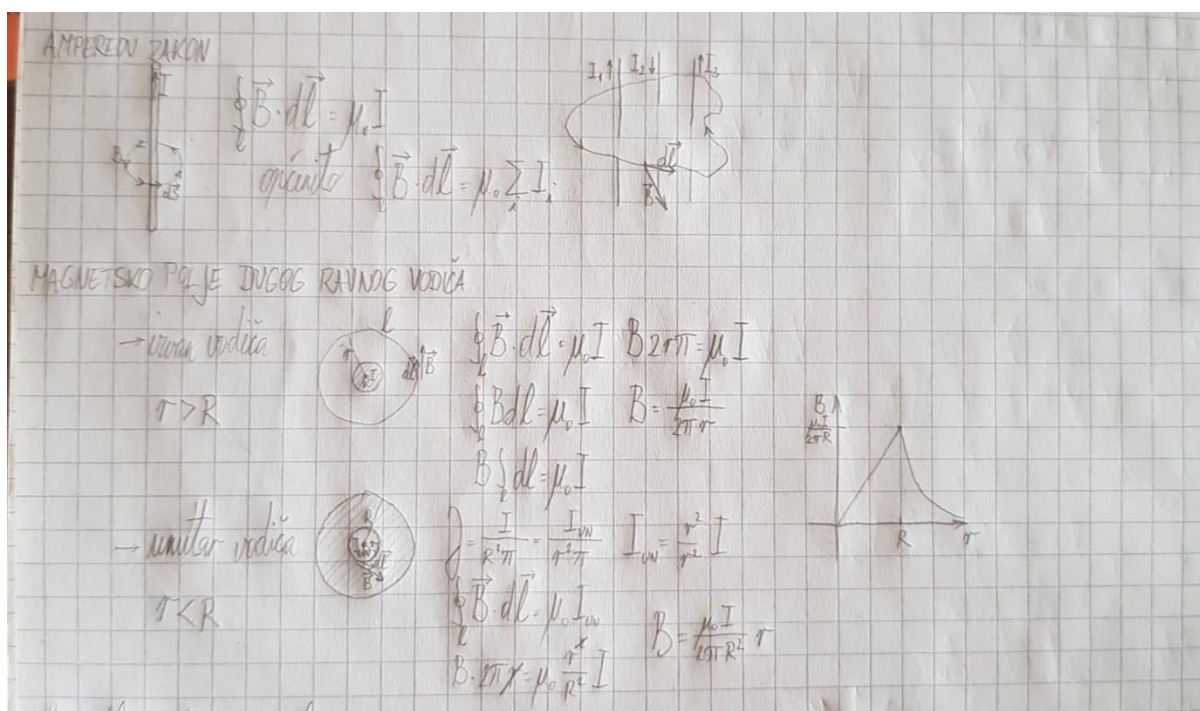 AMPEREOV ZAKON
I
∮ₗ B⃗·dl⃗ = μ₀I
općenito ∮ₗ B⃗·dl⃗ = μ₀ ∑ᵢ Iᵢ
I₁↑ I₂↓ ↑I₃
dl⃗
B⃗
MAGNETSKO POLJE DUGOG RAVNOG VODIČA
→ izvan vodiča
r > R
l
r
I
dl⃗ B⃗
∮ₗ B⃗·dl⃗ = μ₀I B2rπ = μ₀I
∮ₗ Bdl = μ₀I B = μ₀I/2πr
B ∮ₗ dl = μ₀I
B
μ₀I/2πR
R
r
→ unutar vodiča
r < R
B⃗
J = I/R²π = I_UN/r²π I_UN = r²/r² I
∮ₗ B⃗·dl⃗ = μ₀I_UN
B·2πr = μ₀ r²/R² I
B = μ₀I/2πR² r